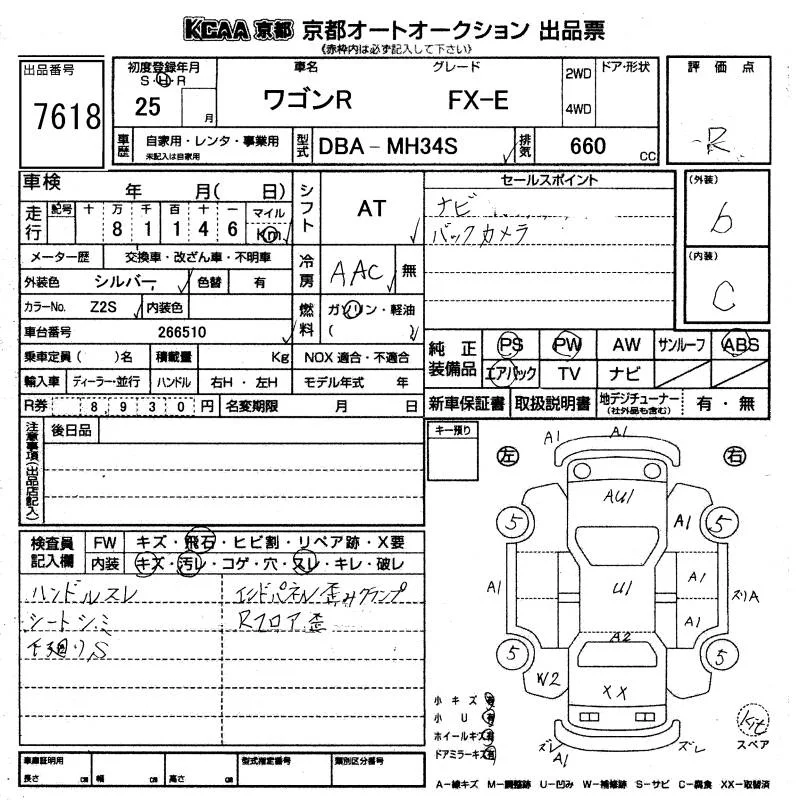 KCAA 京都 京都オートオークション 出品票
《赤枠内は必ず記入して下さい》
出品番号
7618
初度登録年月
S・H・R
25 月
車名
ワゴンR
グレード
FX-E
2WD
4WD
ドア・形状
評価点
R
車歴
自家用・レンタ・事業用
未記入は自家用
型式
DBA-MH34S
排気
660 CC
車検 年 月( 日)
走行
記号 十 万 千 百 十 一 マイル
8 1 1 4 6 Km
メーター歴 交換車・改ざん車・不明車
外装色 シルバー 色替 有
カラーNo. Z2S 内装色
車台番号 266510
乗車定員( )名 積載量 Kg
輸入車 ディーラー・並行 ハンドル 右H・左H
R券 8930円 名変期限 月 日
シフト AT
冷房 AAC 無
燃料 ガソリン・軽油
( )
NOX 適合・不適合
モデル年式 年
セールスポイント
ナビ
バックカメラ
(外装)
b
(内装)
C
純正装備品
PS PW AW サンルーフ ABS
エアバック TV ナビ
新車保証書 取扱説明書 地デジチューナー(社外品も含む) 有・無
注意事項(出品店記入)
後日品
検査員記入欄
FW キズ・飛石・ヒビ割・リペア跡・X要
内装 キズ・汚レ・コゲ・穴・スレ・キレ・破レ
ハンドルスレ
シートシミ
下廻りS
エンドパネル歪みクランプ
Rフロア歪
キー預り
左
右
A1 A1
AU1
5 A1 5
A1 U1 A1 ズリA
A1
A2
5 5
W2 XX
小キズ 有
小U 有
ホイールキズ 有
ドアミラーキズ 有
ズレ A1 ズレ
Kit
スペア
車庫証明用
長さ cm 幅 cm 高さ cm
型式指定番号
類別区分番号
A-線キズ M-調整跡 U-凹み W-補修跡 S-サビ C-腐食 XX-取替済